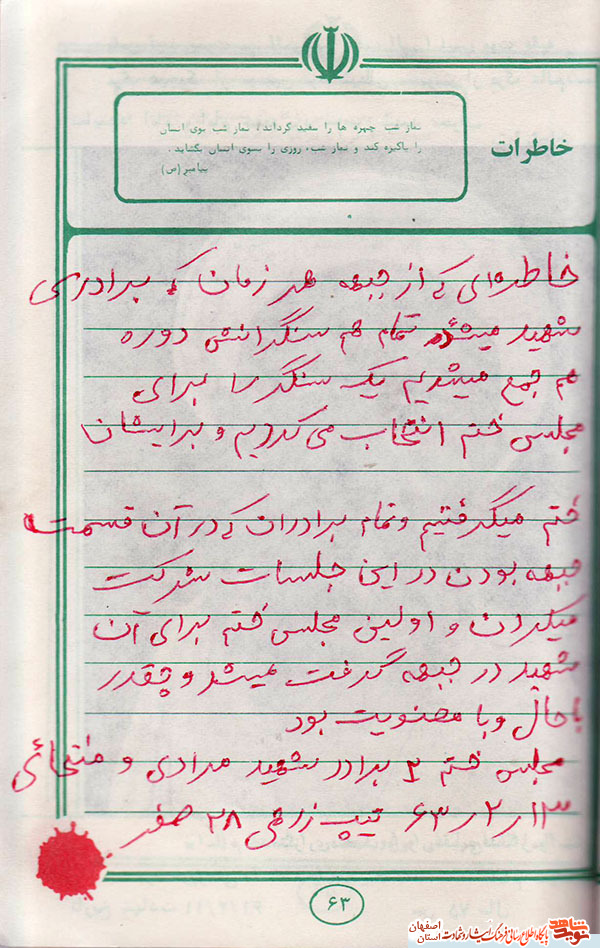 نماز شب چهره ها را سفید گرداند، نماز شب بوی انسان
را پاکیزه کند و نماز شب، روزی را بسوی انسان بگشاید .
پیامبر (ص)
خاطرات
خاطره‌ای که از جبهه هر زمان که برادری
شهید میشد تمام هم سنگرانش دوره
هم جمع میشدیم یک سنگر را برای
مجلس ختم انتخاب می کردیم و برایشان
ختم میگرفتیم و تمام برادران که در آن قسمت
جبهه بودن در این جلسات شرکت
میکردن و اولین مجلس ختم برای آن
شهید در جبهه گرفت میشد و چقدر
باحال و با معنویت بود
مجلس ختم ۲ برادر شهید مرادی و
۶۳/۲/۱۳ تیپ زرهی ۲۸ صفر
۶۳
نوید شاهد
اصفهان
استان
پایگاه اطلاع رسانی فرهنگ ایثار و شهادت